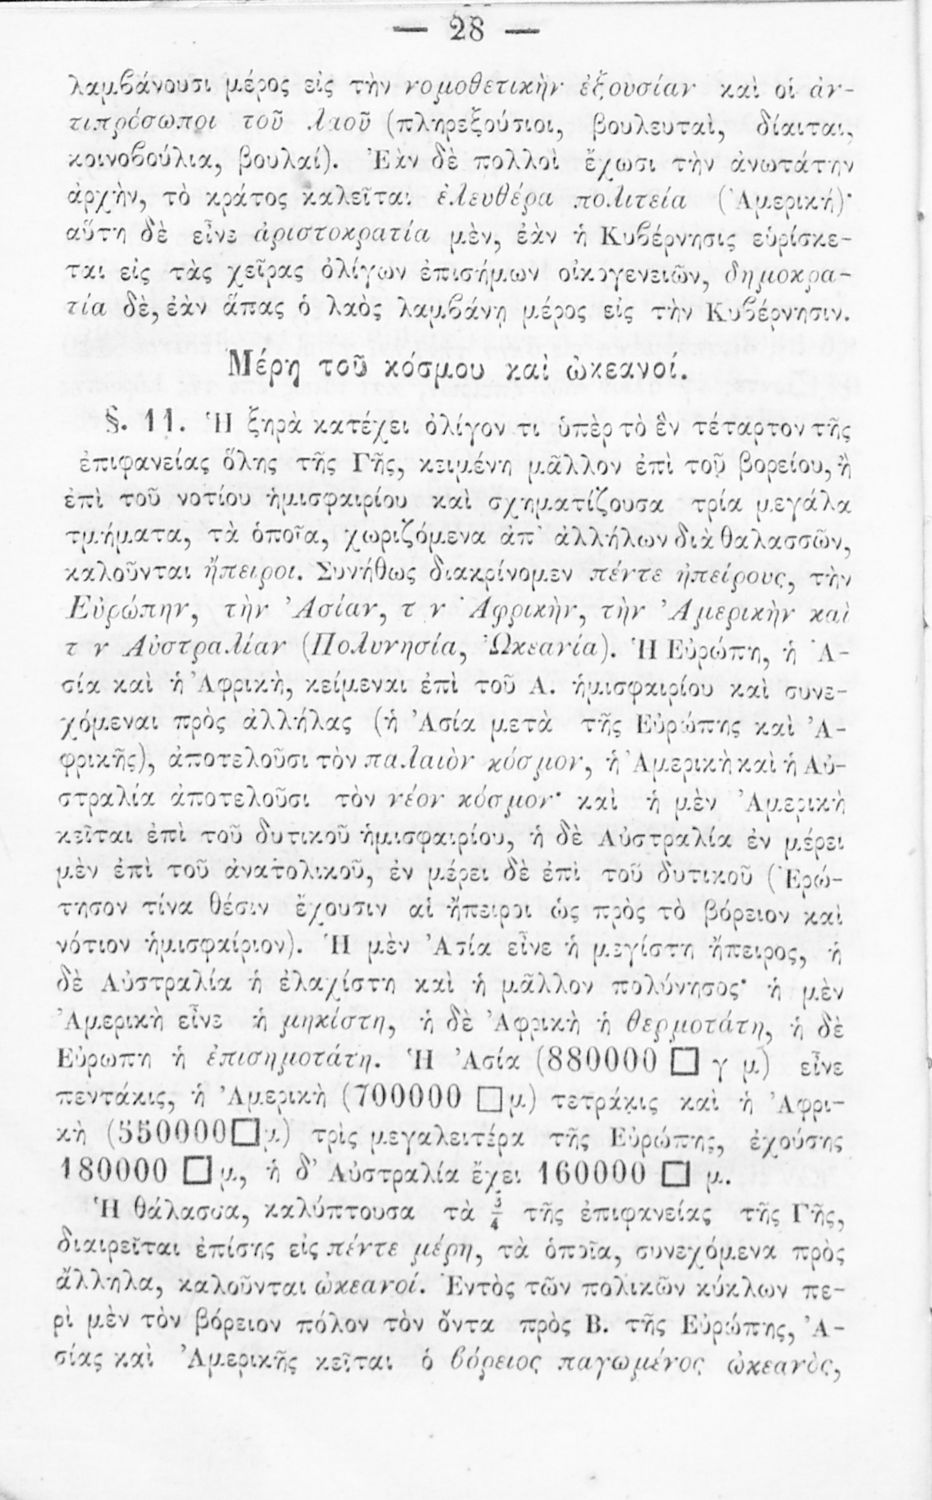 — 28 —
λαμβάνουσι μέρος εἰς τὴν νομοθετικὴν ἐξουσίαν καὶ οἱ ἀν-
τιπρόσωποι τοῦ λαοῦ (πληρεξούσιοι, βουλευταὶ, δίαιται,
κοινοβούλια, βουλαί). Ἐὰν δὲ πολλοὶ ἔχωσι τὴν ἀνωτάτην
ἀρχὴν, τὸ κράτος καλεῖται ἐλευθέρα πολιτεία (Ἀμερική)·
αὕτη δὲ εἶνε ἀριστοκρατία μὲν, ἐὰν ἡ Κυβέρνησις εὑρίσκε-
ται εἰς τὰς χεῖρας ὀλίγων ἐπισήμων οἰκογενειῶν, δημοκρα-
τία δὲ, ἐὰν ἅπας ὁ λαὸς λαμβάνῃ μέρος εἰς τὴν Κυβέρνησιν.
Μέρη τοῦ κόσμου καὶ ὠκεανοί.
§. 11. Ἡ ξηρὰ κατέχει ὀλίγον τι ὑπὲρ τὸ ἓν τέταρτον τῆς
ἐπιφανείας ὅλης τῆς Γῆς, κειμένη μᾶλλον ἐπὶ τοῦ βορείου, ἢ
ἐπὶ τοῦ νοτίου ἡμισφαιρίου καὶ σχηματίζουσα τρία μεγάλα
τμήματα, τὰ ὁποῖα, χωριζόμενα ἀπ' ἀλλήλων διὰ θαλασσῶν,
καλοῦνται ἤπειροι. Συνήθως διακρίνομεν πέντε ἠπείρους, τὴν
Εὐρώπην, τὴν Ἀσίαν, τ ν Ἀφρικὴν, τὴν Ἀμερικὴν καὶ
τ ν Αὐστραλίαν (Πολυνησία, Ὠκεανία). Ἡ Εὐρώπη, ἡ Ἀ-
σία καὶ ἡ Ἀφρικὴ, κείμεναι ἐπὶ τοῦ Α. ἡμισφαιρίου καὶ συνε-
χόμεναι πρὸς ἀλλήλας (ἡ Ἀσία μετὰ τῆς Εὐρώπης καὶ Ἀ-
φρικῆς), ἀποτελοῦσι τὸν παλαιὸν κόσμον, ἡ Ἀμερικὴ καὶ ἡ Αὐ-
στραλία ἀποτελοῦσι τὸν νέον κόσμον· καὶ ἡ μὲν Ἀμερικὴ
κεῖται ἐπὶ τοῦ δυτικοῦ ἡμισφαιρίου, ἡ δὲ Αὐστραλία ἐν μέρει
μὲν ἐπὶ τοῦ ἀνατολικοῦ, ἐν μέρει δὲ ἐπὶ τοῦ δυτικοῦ (Ἐρώ-
τησον τίνα θέσιν ἔχουσιν αἱ ἤπειροι ὡς πρὸς τὸ βόρειον καὶ
νότιον ἡμισφαίριον). Ἡ μὲν Ἀσία εἶνε ἡ μεγίστη ἤπειρος, ἡ
δὲ Αὐστραλία ἡ ἐλαχίστη καὶ ἡ μᾶλλον πολύνησος· ἡ μὲν
Ἀμερικὴ εἶνε ἡ μηκίστη, ἡ δὲ Ἀφρικὴ ἡ θερμοτάτη, ἡ δὲ
Εὐρωπη ἡ ἐπισημοτάτη. Ἡ Ἀσία (880000 □ γ μ) εἶνε
πεντάκις, ἡ Ἀμερικὴ (700000 □ μ) τετράκις καὶ ἡ Ἀφρι-
κὴ (550000 □ μ.) τρὶς μεγαλειτέρα τῆς Εὐρώπης, ἐχούσης
180000 □ μ., ἡ δ' Αὐστραλία ἔχει 160000 □ μ.
Ἡ θάλασσα, καλύπτουσα τὰ 3/4 τῆς ἐπιφανείας τῆς Γῆς,
διαιρεῖται ἐπίσης εἰς πέντε μέρη, τὰ ὁποῖα, συνεχόμενα πρὸς
ἄλληλα, καλοῦνται ὠκεανοί. Ἐντὸς τῶν πολικῶν κύκλων πε-
ρὶ μὲν τὸν βόρειον πόλον τὸν ὄντα πρὸς Β. τῆς Εὐρώπης, Ἀ-
σίας καὶ Ἀμερικῆς κεῖται ὁ βόρειος παγωμένος ὠκεανὸς,